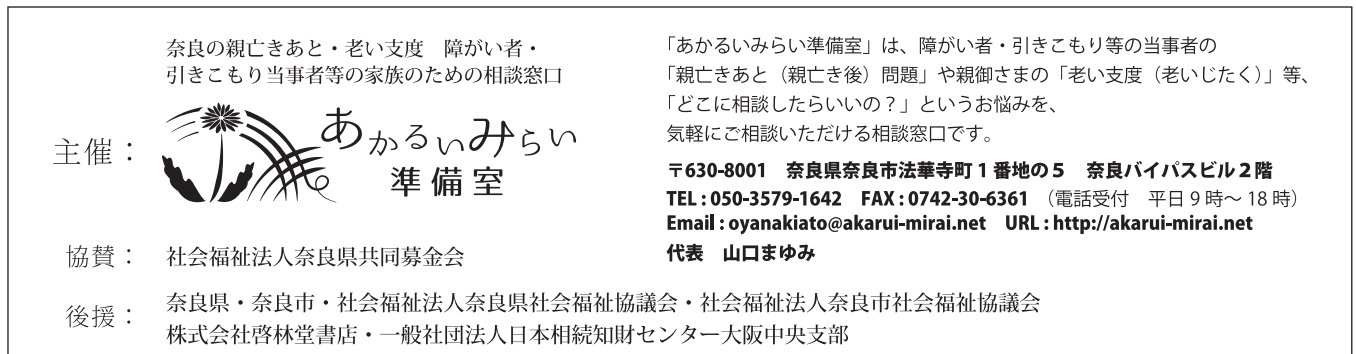 主催：
奈良の親亡きあと・老い支度　障がい者・
引きこもり当事者等の家族のための相談窓口
あかるいみらい
準備室
「あかるいみらい準備室」は、障がい者・引きこもり等の当事者の
「親亡きあと（親亡き後）問題」や親御さまの「老い支度（老いじたく）」等、
「どこに相談したらいいの？」というお悩みを、
気軽にご相談いただける相談窓口です。
〒630-8001　奈良県奈良市法華寺町１番地の５　奈良バイパスビル２階
TEL : 050-3579-1642　FAX : 0742-30-6361　（電話受付　平日９時～18時）
Email : oyanakiato@akarui-mirai.net　URL : http://akarui-mirai.net
代表　山口まゆみ
協賛：　社会福祉法人奈良県共同募金会
後援：
奈良県・奈良市・社会福祉法人奈良県社会福祉協議会・社会福祉法人奈良市社会福祉協議会
株式会社啓林堂書店・一般社団法人日本相続知財センター大阪中央支部